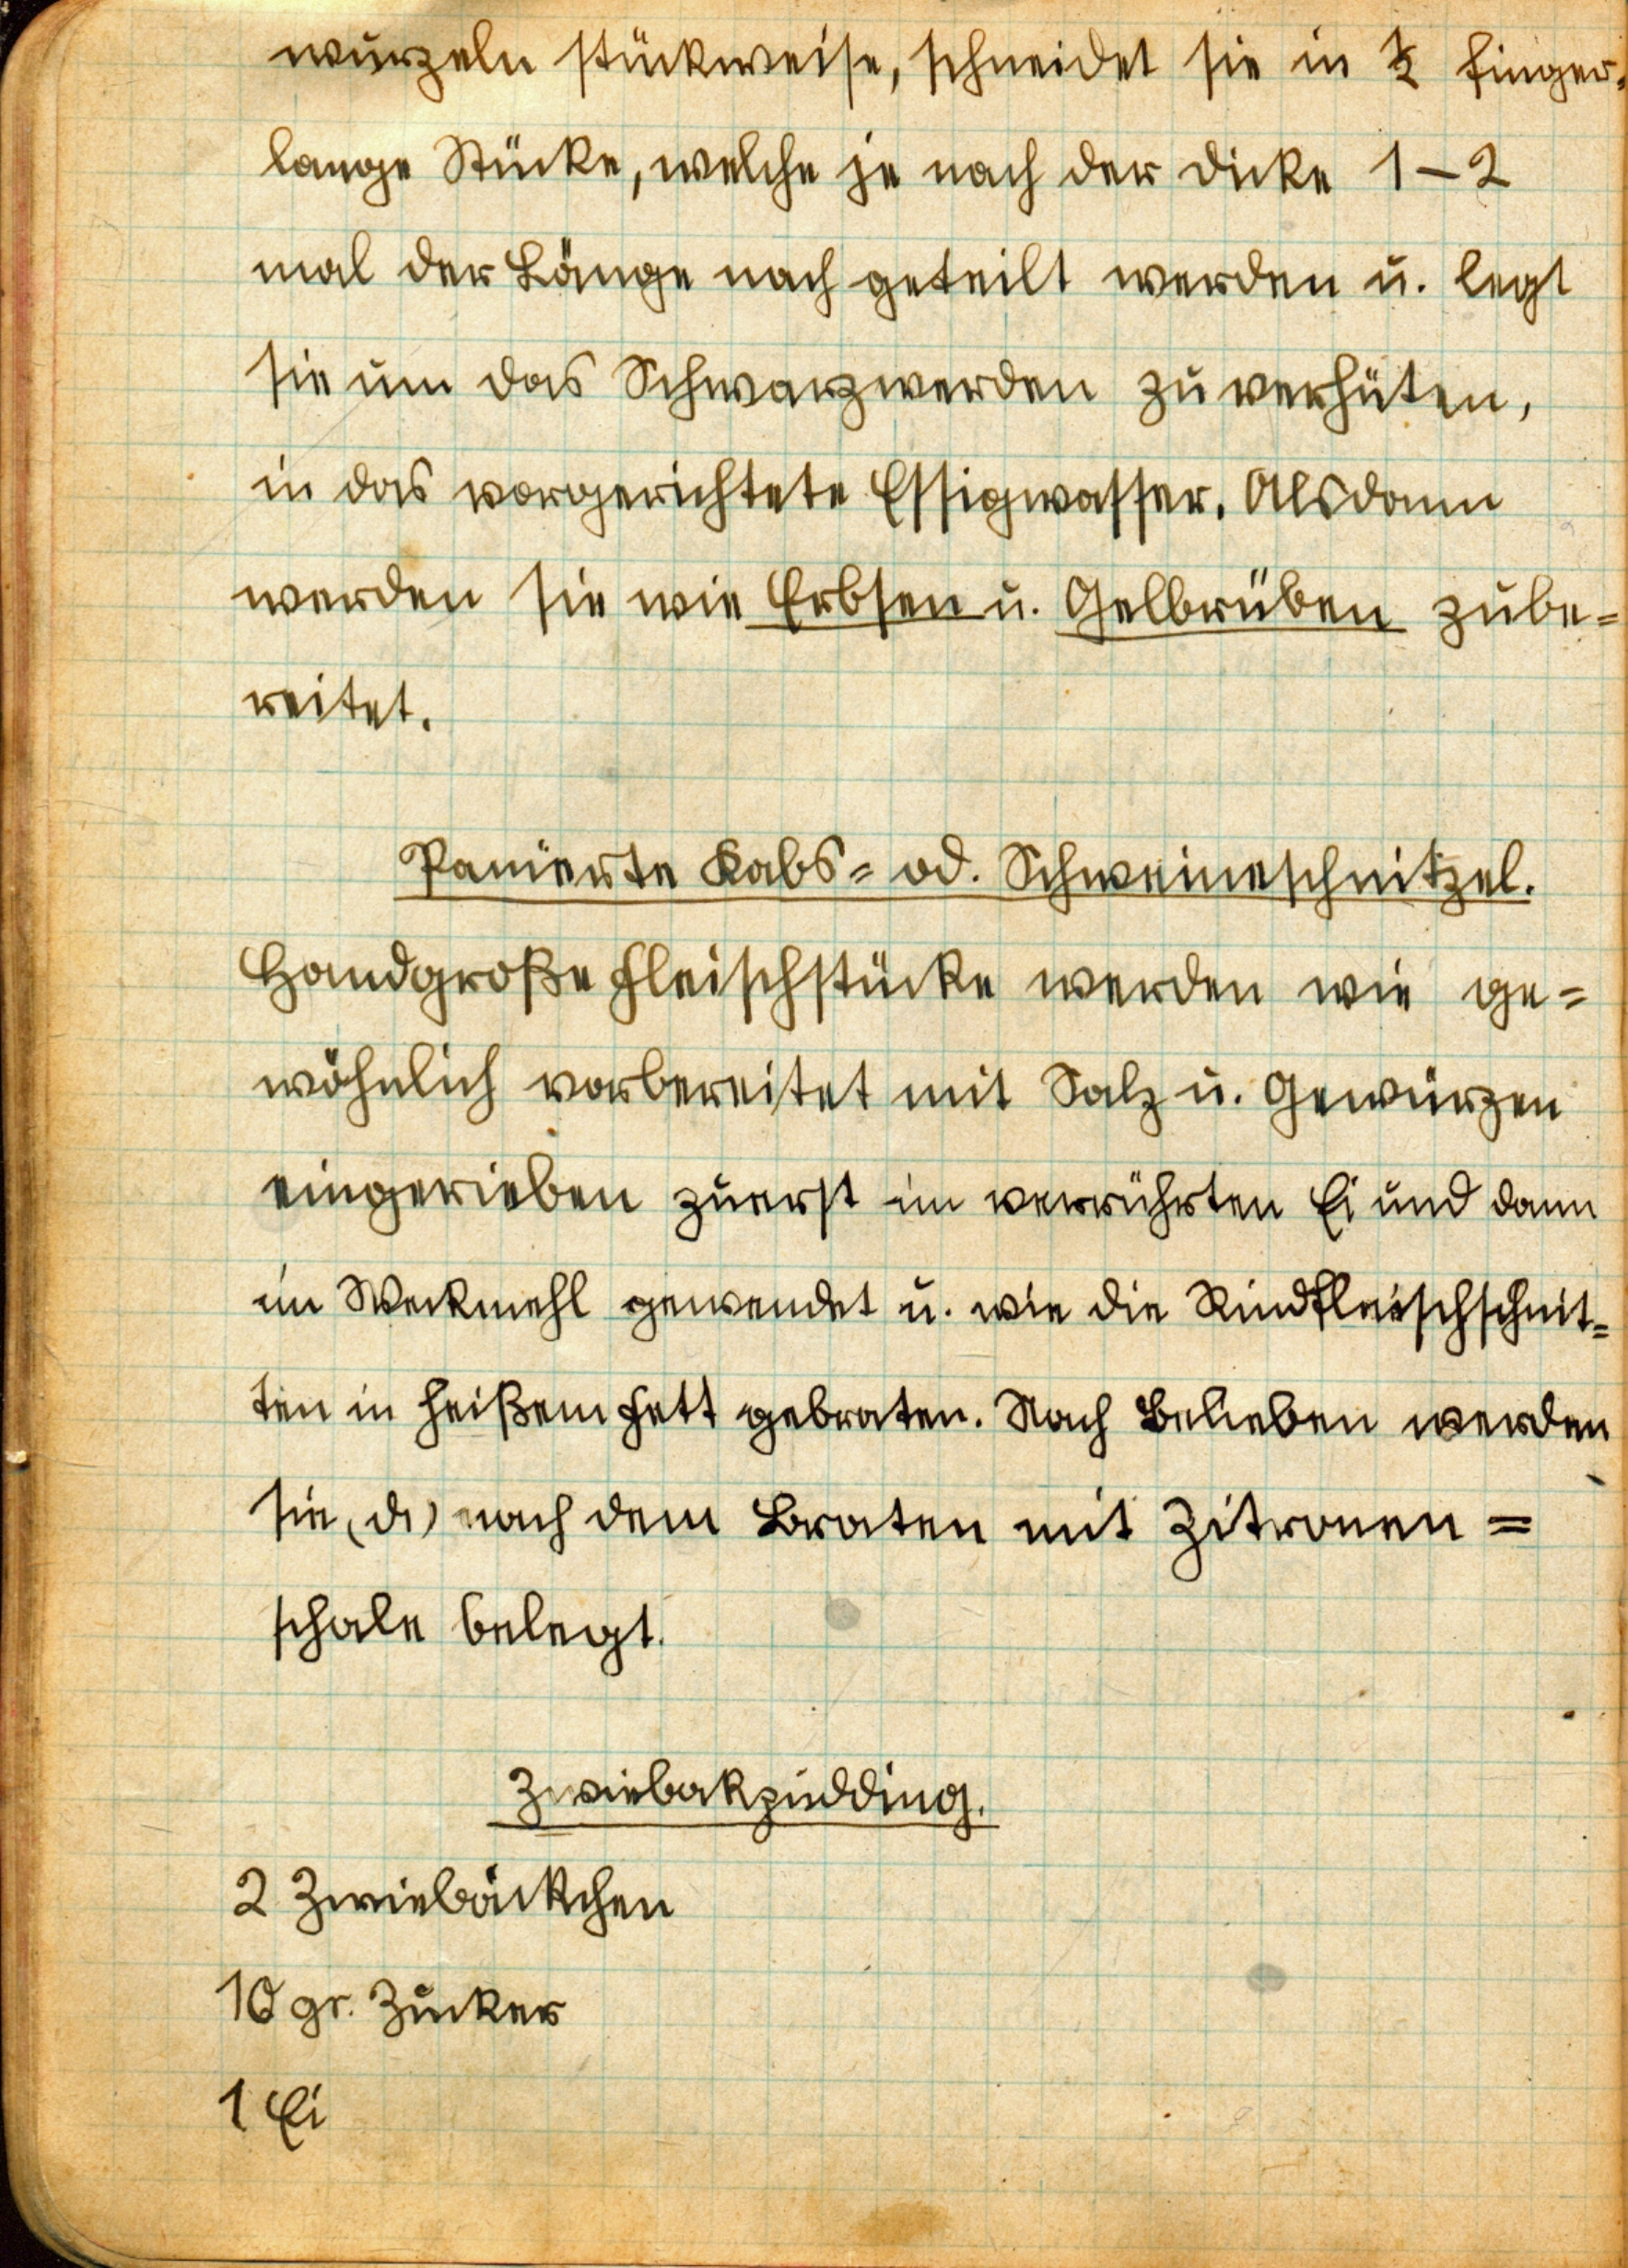 wurzeln stückweise, schneidet sie in ½ finger-
lange Stücke, welche je nach der Dicke 1–2
mal der Länge nach geteilt werden u. legt
sie um das Schwarzwerden zu verhüten,
in das vorgerichtete Essigwasser. Alsdann
werden sie wie Erbsen u. Gelbrüben zube=
reitet.
Panierte Kabs= od. Schweineschnitzel.
Handgroße Fleischstücke werden wie ge=
wöhnlich vorbereitet mit Salz u. Gewürzen
eingerieben zuerst im verrührten Ei und dann
im Weckmehl gewendet u. wie die Rindfleischschnit=
ten in heißem Fett gebraten. Nach Belieben werden
sie (di) nach dem Braten mit Zitronen=
schale belegt.
Zwiebakpudding.
2 Zwiebäckchen
10 gr. Zucker
1 Ei